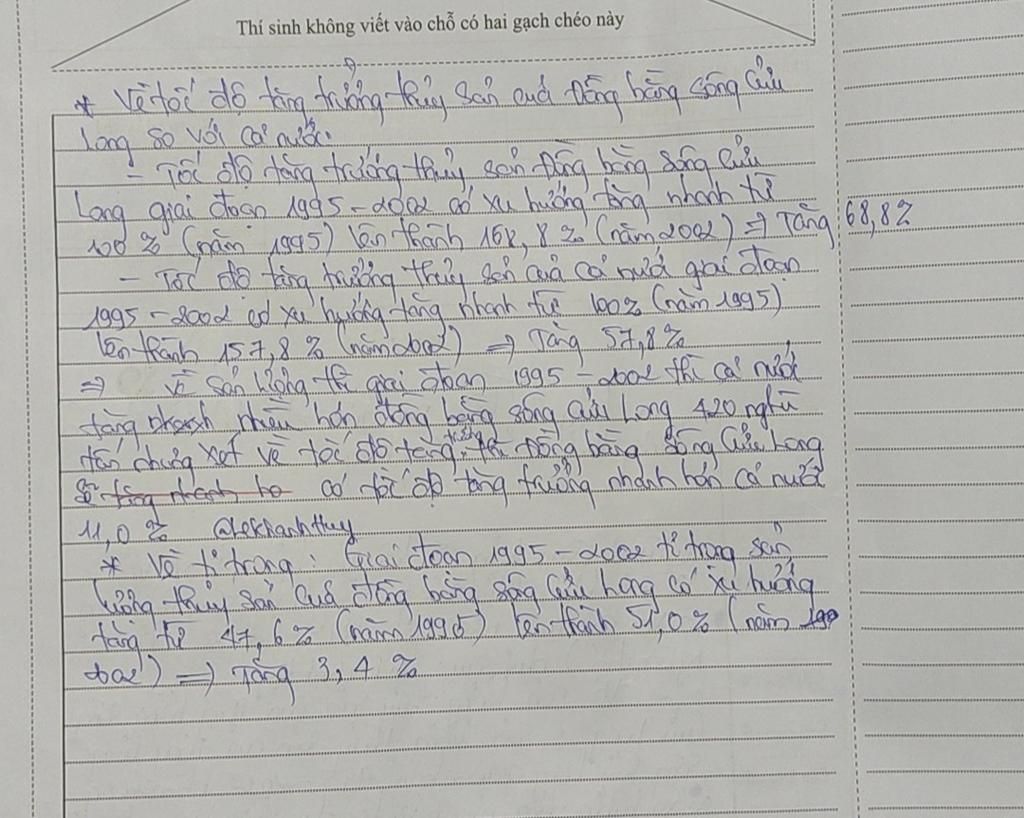 Thí sinh không viết vào chỗ có hai gạch chéo này
* Về tốc độ tăng trưởng thủy sản của Đồng bằng sông Cửu
Long so với cả nước.
- Tốc độ tăng trưởng thủy sản Đồng bằng sông Cửu
Long giai đoạn 1995-2002 có xu hướng tăng nhanh từ
100% (năm 1995) lên thành 168,8% (năm 2002) => Tăng 68,8%
- Tốc độ tăng trưởng thủy sản của cả nước giai đoạn
1995-2002 có xu hướng tăng nhanh từ 100% (năm 1995)
lên thành 157,8% (năm 2002) => Tăng 57,8%
=> Về sản lượng thì giai đoạn 1995-2002 thì cả nước
tăng nhanh nhiều hơn đồng bằng sông Cửu Long 420 nghìn
tấn nhưng xét về tốc độ tăng trưởng thì Đồng bằng sông Cửu Long
sẽ tăng nhanh hơ có tốc độ tăng trưởng nhanh hơn cả nước
11,0% @lekhanhthuy
* Về tỉ trọng: Giai đoạn 1995-2002 tỉ trọng sản
lượng thủy sản của đồng bằng sông Cửu Long có xu hướng
tăng từ 47,6% (năm 1995) lên thành 51,0% (năm
2002) => Tăng 3,4%